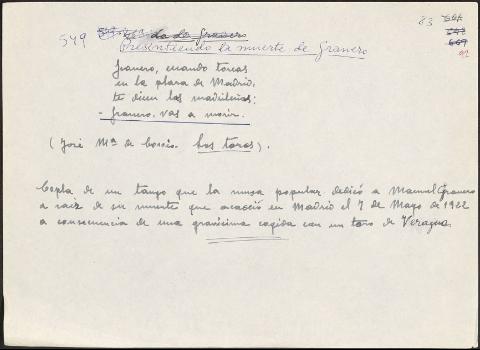 549
da de Granero
Presentiendo la muerte de Granero
83
91
Granero, cuando toreas
en la plaza de Madrid,
te dicen las madrileñas:
- Granero, vas a morir.
(José Mª de Cossío. Los toros).
Copla de un tango que la musa popular dedicó a Manuel Granero
a raiz de su muerte que acaeció en Madrid el 7 de Mayo de 1922
a consecuencia de una gravísima cogida con un toro de Veragua.